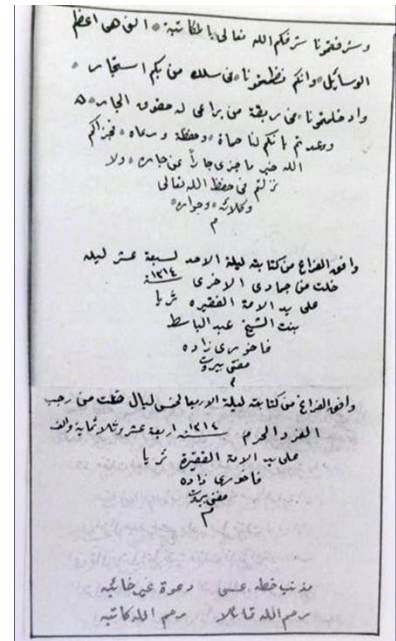 وشرفتمونا شرفكم الله تعالى بالمكاتبة التى هى اعظم
الوسايل وانكم نظمتمونا فى سلك من بكم استجار
وادخلتمونا فى ربقة من يراعى له حقوق الجار
ووعدتم بانكم لنا حماة وحفظة ورعاه فجزاكم
الله خير ما جزى جاراً عن جاره ولا
زلتم فى حفظ الله تعالى
وكلائه وجواره
م
وافق الفراغ من كتابته ليلة الاحد لسبعة عشر ليلة
خلت من جمادى الاخرى ١٣١٤ سنه
على يد الامة الفقيره ثريا
بنت الشيخ عبد الباسط
فاخورى زاده
مفتى بيروت
م
وافق الفراغ من كتابته ليلة الاربعا لخمس ليال خلت من رجب
الفرد الحرم سنه ١٣١٤ اربعة عشر وثلاثماية والف
على يد الامة الفقيرة ثريا
فاخورى زاده
مفتى بيروت
م
مذنب خطه عسى دعوة غير خائبه
رحم الله قائلا رحم الله كاتبه